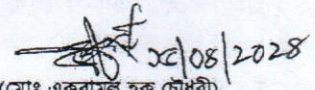 ২৫/০৪/২০২৪
(মোঃ একরামুল হক চৌধুরী)